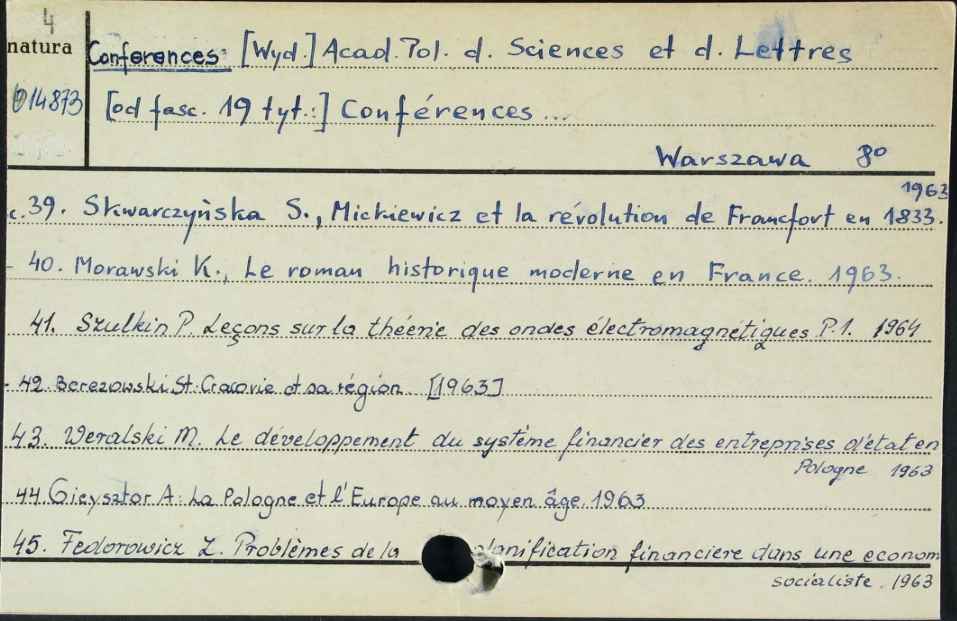 4
natura
Conferences: [Wyd.] Acad. Pol. d. Sciences et d. Lettres
014873
[od fasc. 19 tyt.:] Conférences ...
Warszawa 8º
1963
39. Skwarczyńska S., Mickiewicz et la révolution de Francfort en 1833.
- 40. Morawski K., Le roman historique moderne en France. 1963.
41. Szulkin P. Leçons sur la théerie des ondes électromagnétiques P.1. 1964
- 42 Berezowski St. Cracovie et sa région [1963]
43. Weralski M. Le développement du système financier des entreprises d'état en
Pologne 1963
44. Gieysztor A: La Pologne et l'Europe au moyen âge. 1963
45. Fedorowicz Z. Problèmes de la planification financiere dans une econom
socialiste. 1963